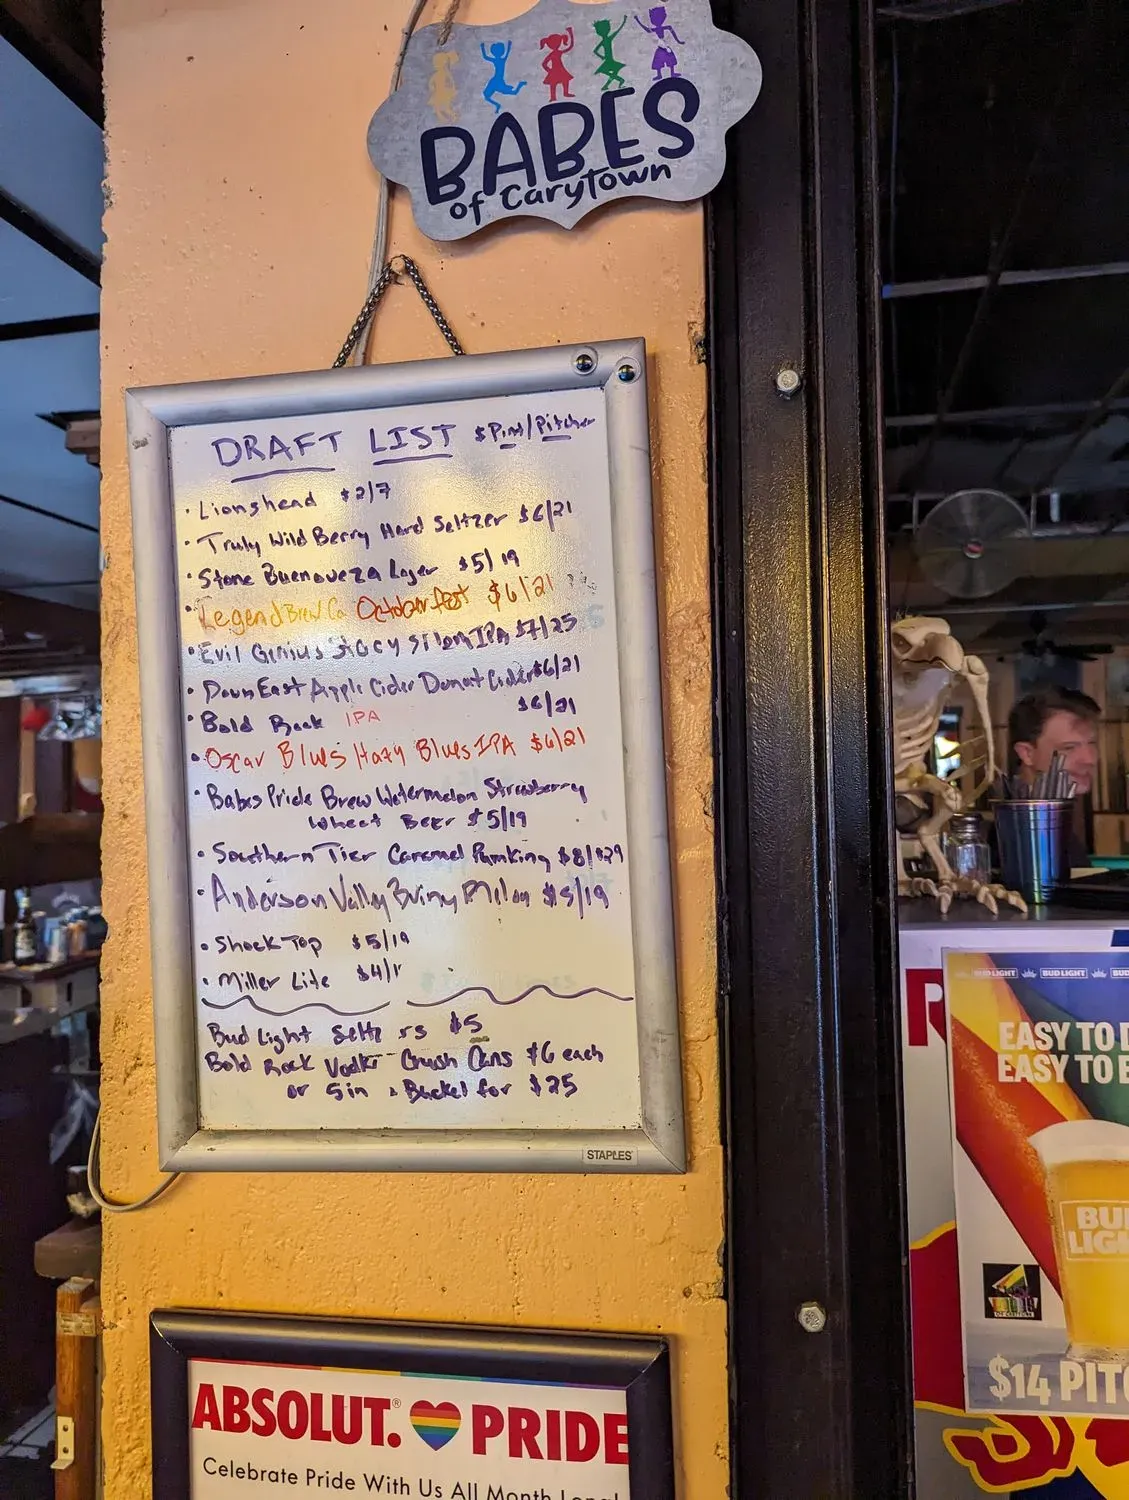 BABES
of Carytown
DRAFT LIST $Pint/Pitcher
· Lionshead $2/7
· Truly Wild Berry Hard Seltzer $6/21
· Stone Buenaveza Lager $5/19
· Legend Brew Co Octoberfest $6/21
· Evil Genius Stacy's Mom IPA $7/25
· DownEast Apple Cider Donut Cider $6/21
· Bold Rock IPA $6/21
· Oscar Blues Hazy Blues IPA $6/21
· Babes Pride Brew Watermelon Strawberry
Wheat Beer $5/19
· Southern Tier Caramel Pumking $8/$29
· Anderson Valley Briny Melon $5/19
· Shock Top $5/19
· Miller Lite $4/1
Bud Light Seltz rs $5
Bold Rock Vodk Crush Cans $6 each
or 5 in a Bucket for $25
STAPLES
ABSOLUT. PRIDE
Celebrate Pride With Us All Month Long!
BUD LIGHT BUD LIGHT BUD
EASY TO D
EASY TO E
BUD
LIGH
$14 PITC